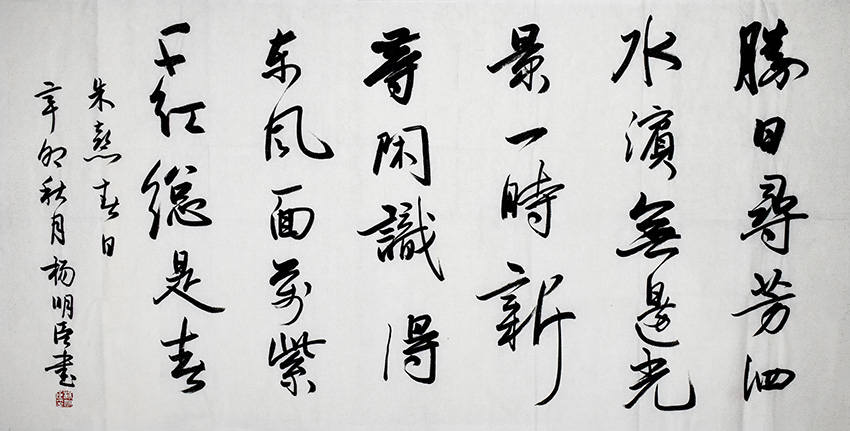 勝日尋芳泗
水濱無邊光
景一時新
等閑識得
东风面萬紫
千红總是春
朱熹春日
辛卯秋月杨明臣書